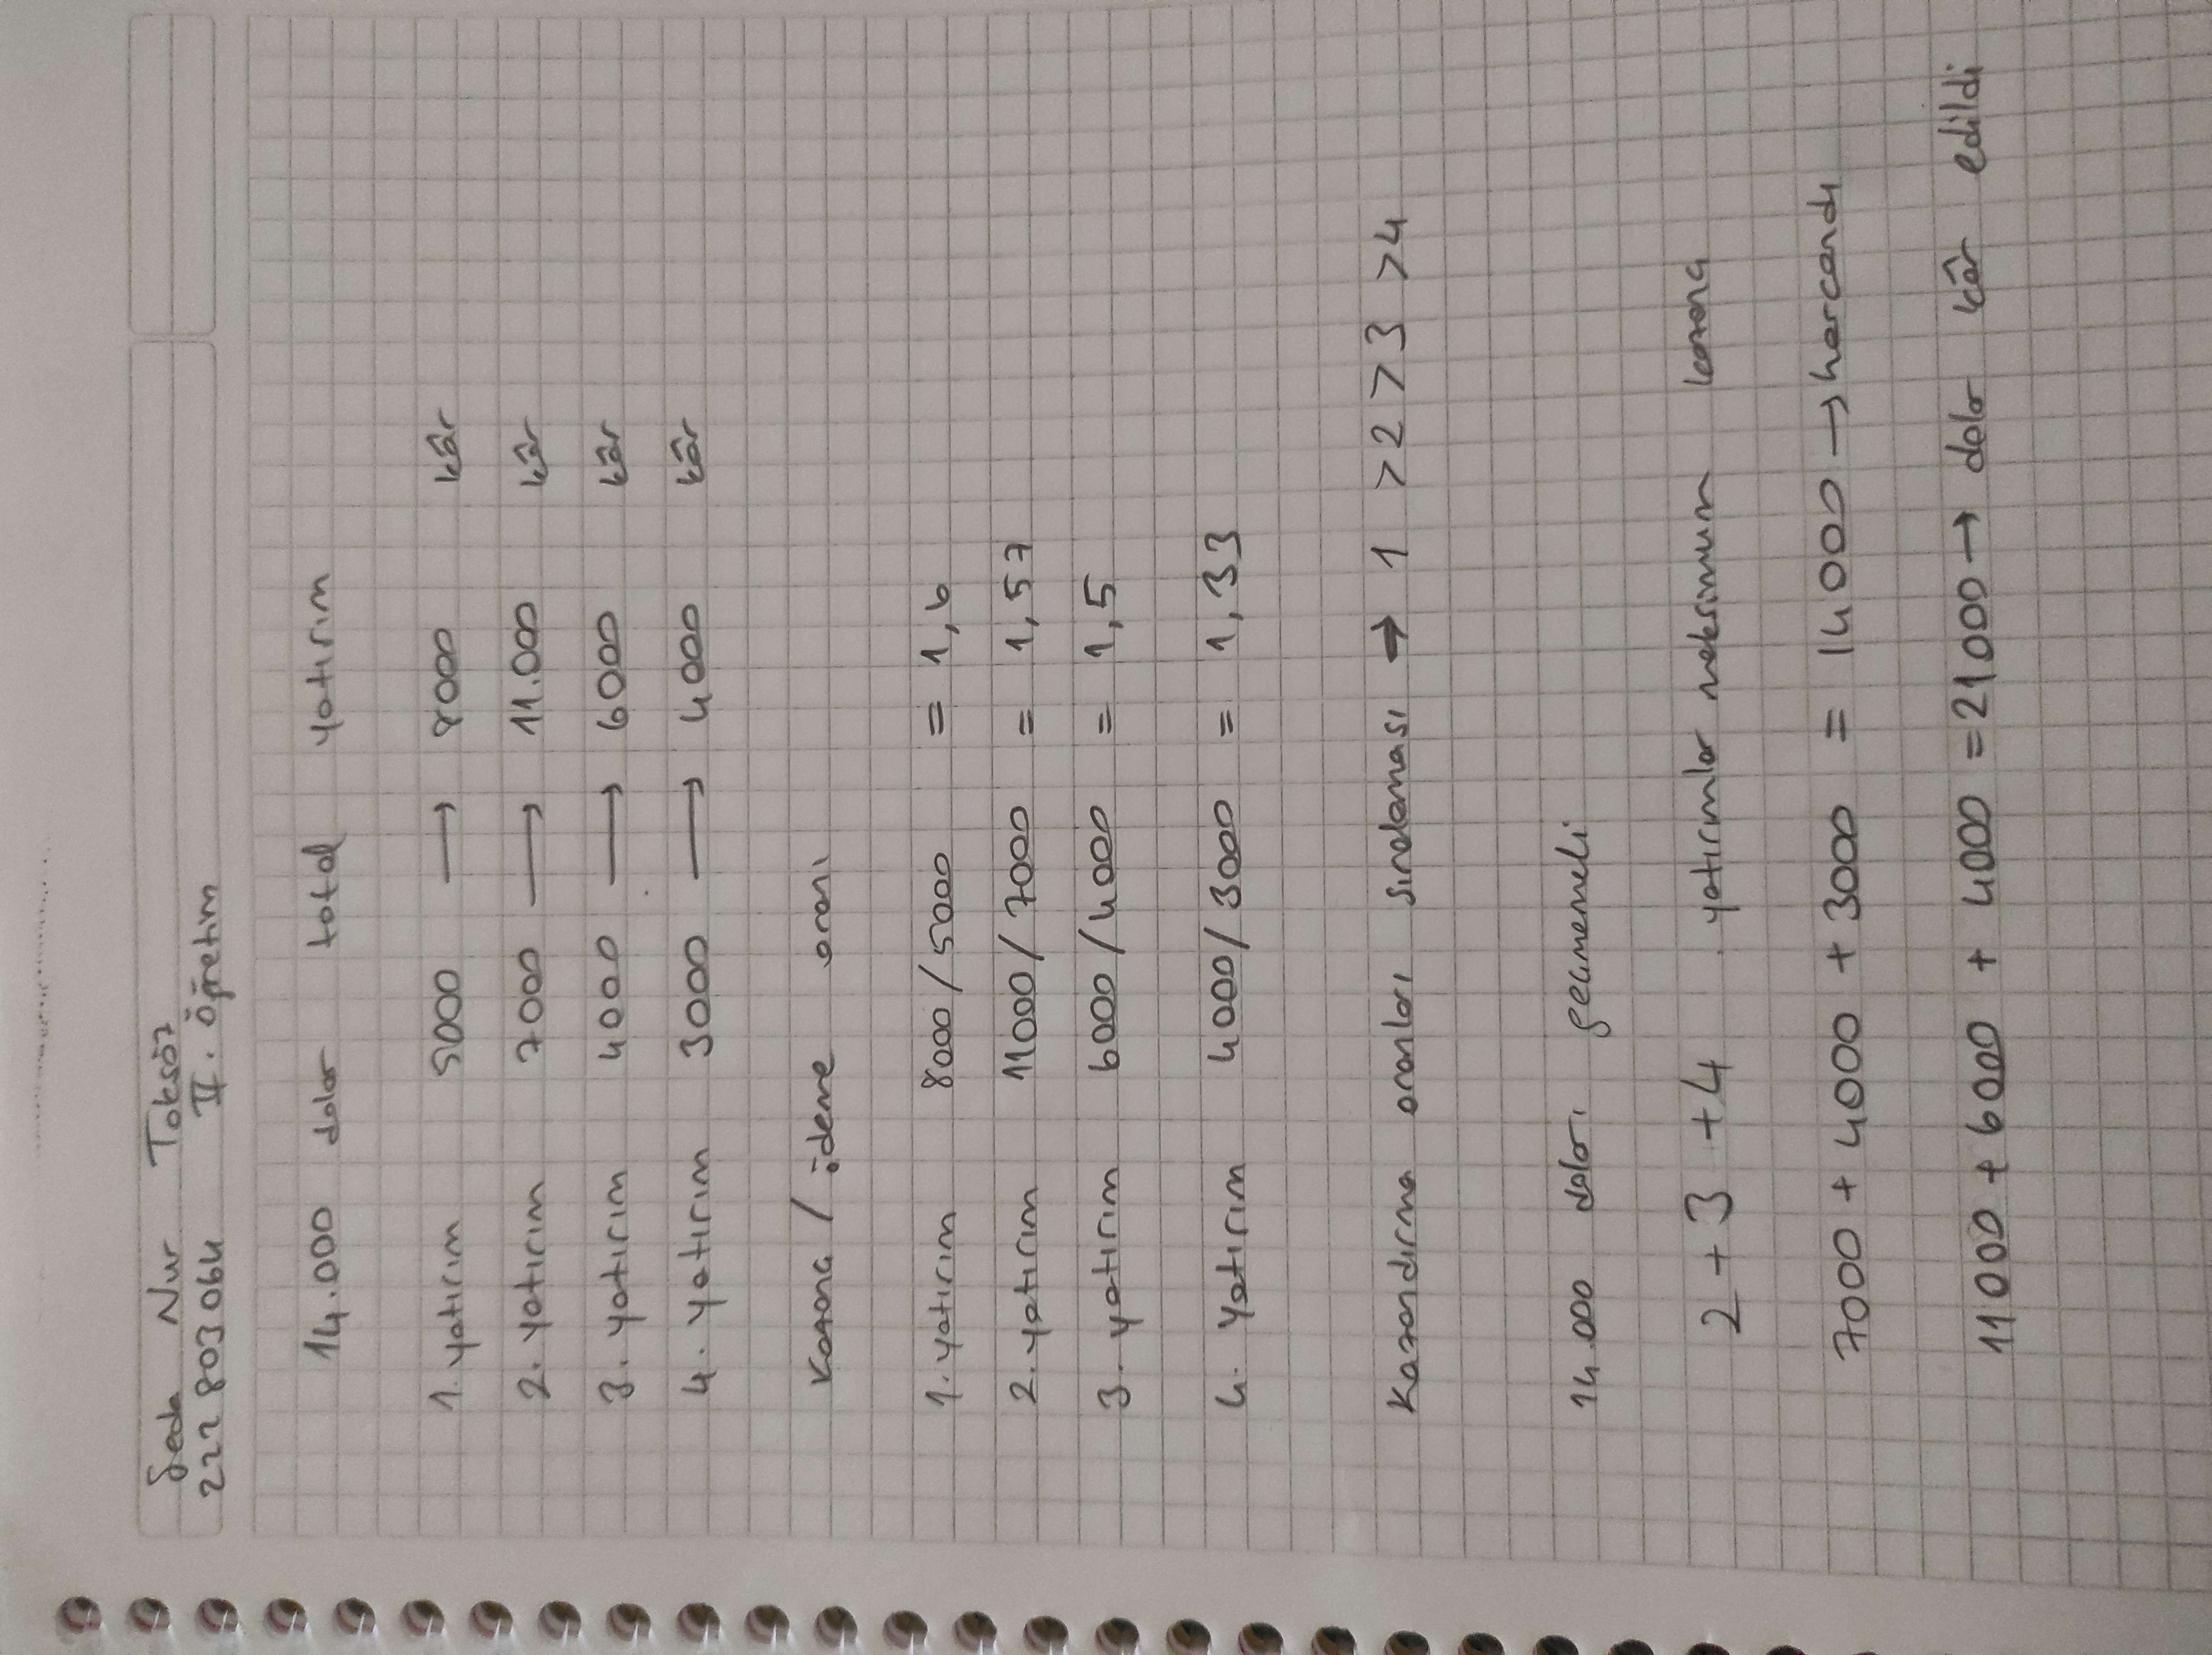 Seda Nur Toksöz
222803064 II. Öğretim
14.000 dolar total yatırım
1. yatırım 5000 → 8000 kâr
2. yatırım 7000 → 11.000 kâr
3. yatırım 4000 → 6000 kâr
4. yatırım 3000 → 4000 kâr
Kazanç / ödeme oranı
1. yatırım 8000/5000 = 1,6
2. yatırım 11000/7000 = 1,57
3. yatırım 6000/4000 = 1,5
4. Yatırım 4000/3000 = 1,33
Kazandırma oranları sıralaması ⇒ 1 >2 >3 >4
14.000 doları geçmemeli
2 + 3 + 4 yatırımlar maksimum kazanç
7000 + 4000 + 3000 = 14000 → harcandı
11000 + 6000 + 4000 = 21000 → dolar kâr edildi